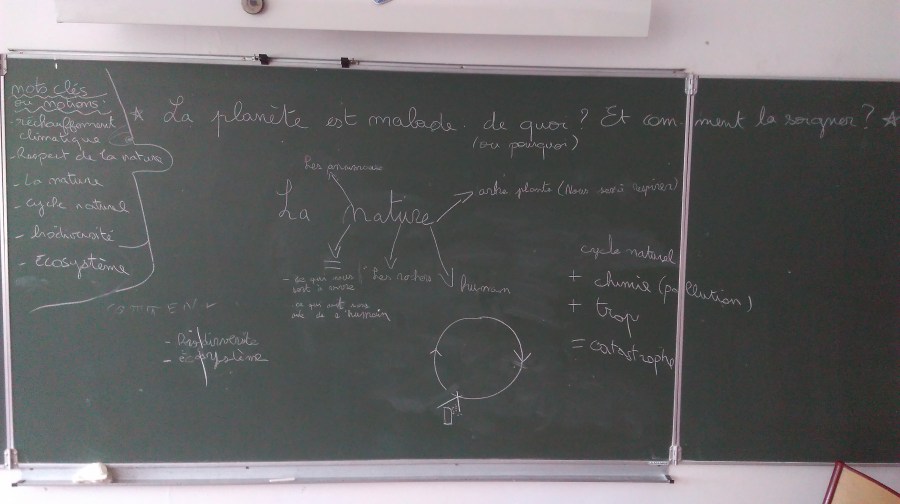 mots clés
ou notions:
- réchauffement
climatique
- Respect de la nature
- La nature
- cycle naturel
- biodiversité
- Ecosystème
☆ La planète est malade. de quoi? Et comment la soigner? ☆
(ou pourquoi)
Les animaux
La nature
arbre plante (Nous sert à respirer)
=
- ce qui nous
sert à vivre
- ce qui
de l'humain
Les rochers
humain
cycle naturel
+ chimie (pollution)
+ trop
= catastrophe
- Biodiversité
- écosystème